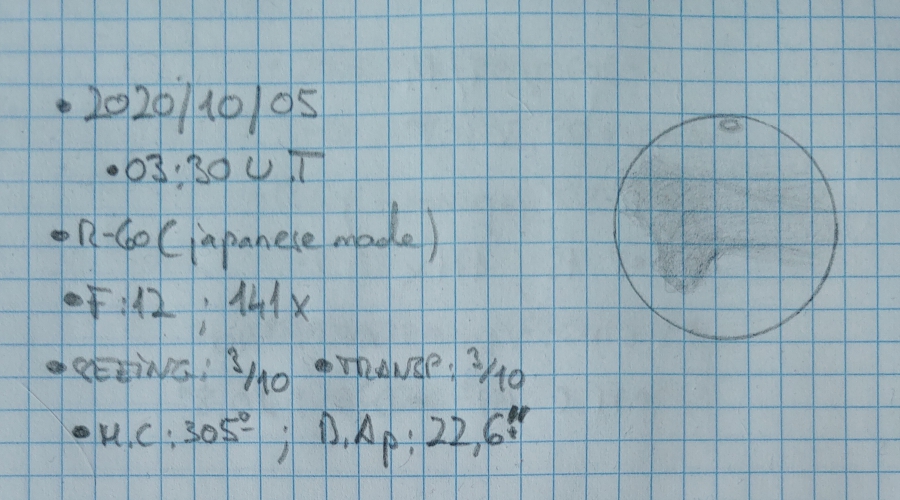 • 2020/10/05
• 03:30 U.T
• R-60 (japanese made)
• F:12 ; 141x
• SEEING: 3/10 • TRANSP: 3/10
• M.C: 305º ; D.Ap: 22,6"